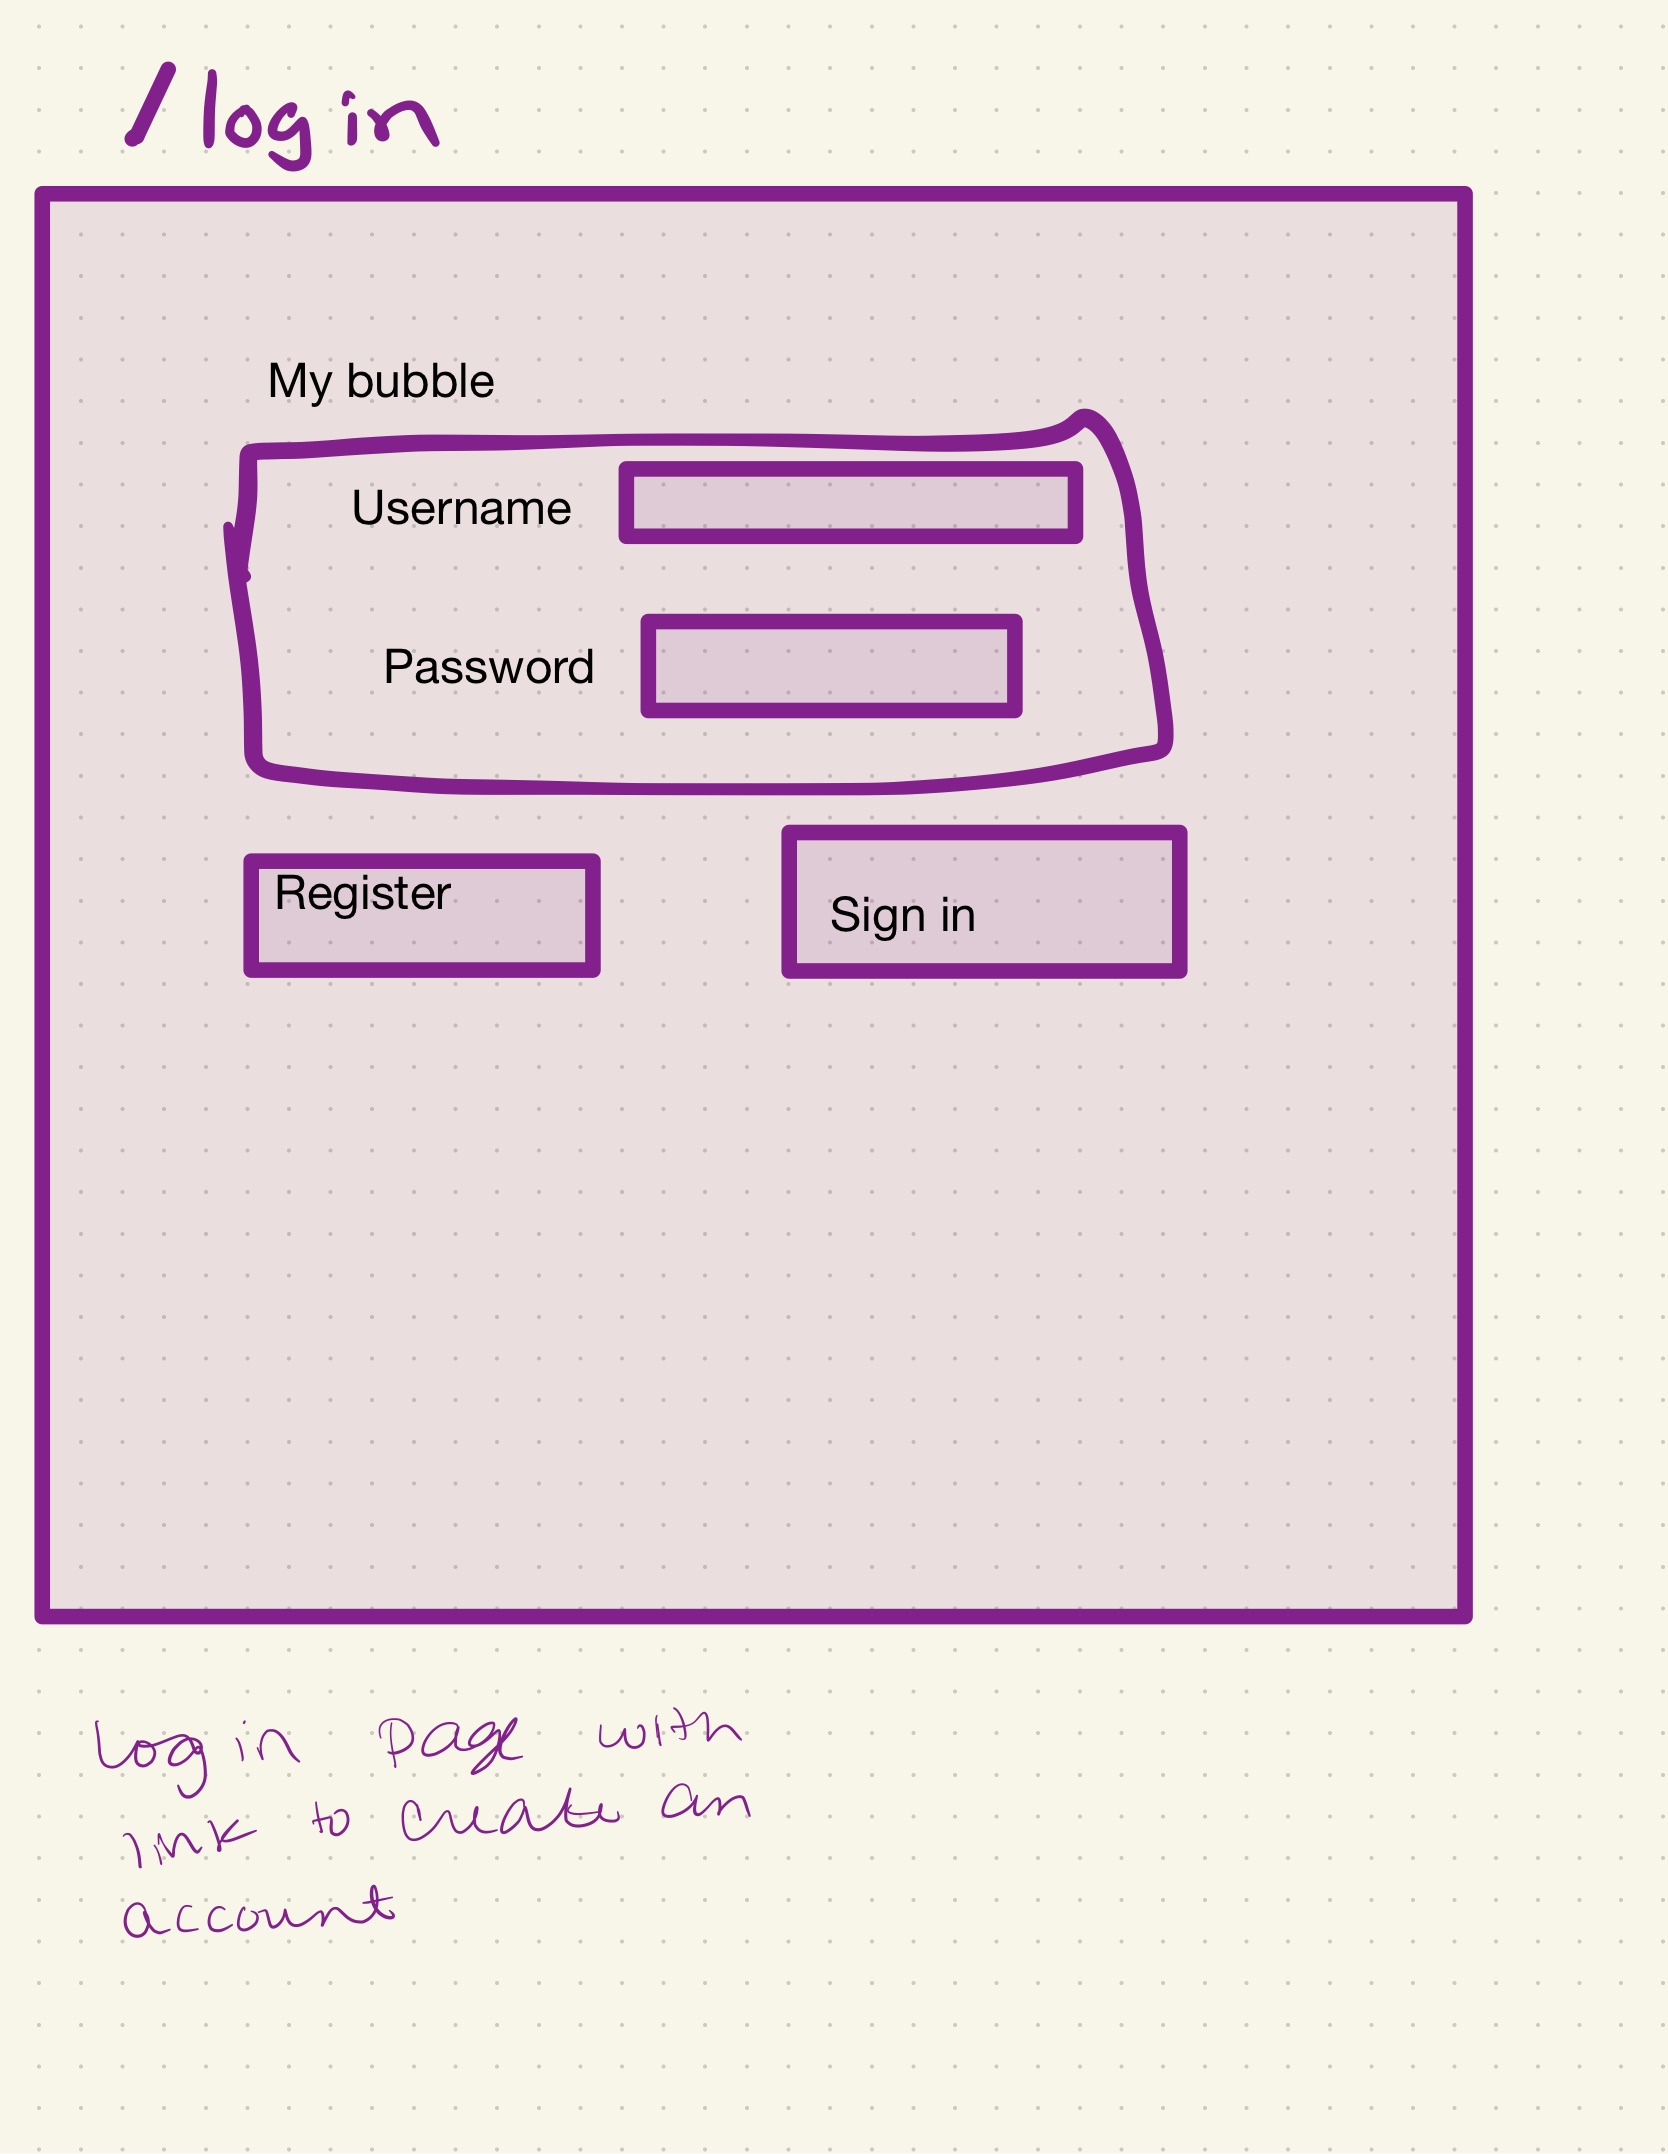 /login
My bubble
Username
Password
Register
Sign in
Log in page with
link to create an
account